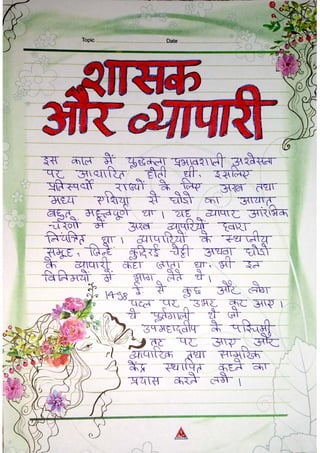 Topic Date
शासक
और व्यापारी
इस काल में युद्धकला प्रभावशाली अश्वसेना
पर आधारित होती थी, इसलिए
प्रतिस्पर्धी राज्यों के लिए अरब तथा
मध्य एशिया से घोडों का आयात
बहुत महत्वपूर्ण था। यह व्यापार आरंभिक
चरणों में अरब व्यापारियों द्वारा
नियंत्रित था। व्यापारियों के स्थानीय
समूह, जिन्हें कुदिरई चेट्टी अथवा घोडों
के व्यापारी कहा जाता था, भी इन
विनिमयों में भाग लेते थे।
1498 ई से कुछ और लोग
पटल पर उभर कर आए।
ये पुर्तगाली थे जो
उपमहाद्वीप के पश्चिमी
तट पर आए और
व्यापारिक तथा सामरिक
केंद्र स्थापित करने का
प्रयास करने लगे।